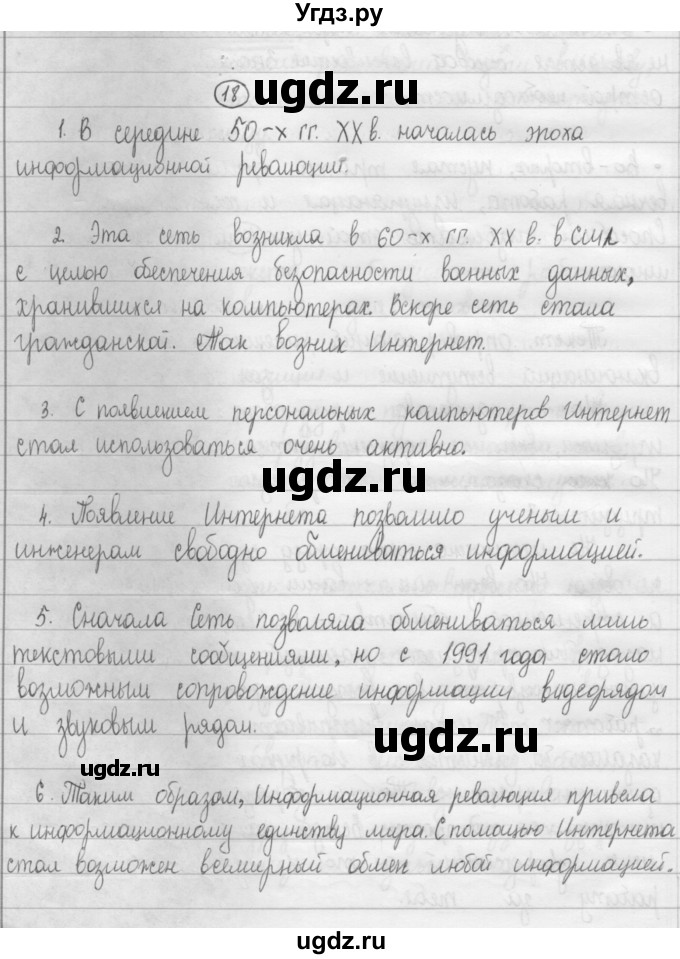 Угдз.ру
18 ugdz.ru
1. В середине 50-х гг. XX в. началась эпоха
информационной революции.
2. Эта сеть возникла в 60-х гг. XX в. в США
с целью обеспечения безопасности военных данных,
хранившихся на компьютерах. Вскоре сеть стала
гражданской. Так возник Интернет.
ugdz.ru
3. С появлением персональных компьютеров Интернет
стал использоваться очень активно.
ugdz.ru
4. Появление Интернета позволило ученым и
инженерам свободно обмениваться информацией.
5. Сначала Сеть позволяла обмениваться лишь
текстовыми сообщениями, но с 1991 года стало
возможным сопровождение информации видеорядом
и звуковым рядом.
ugdz.ru
ugdz.ru
6. Таким образом, Информационная революция привела
к информационному единству мира. С помощью Интернета
стал возможен всемирный обмен любой информацией.
ugdz.ru